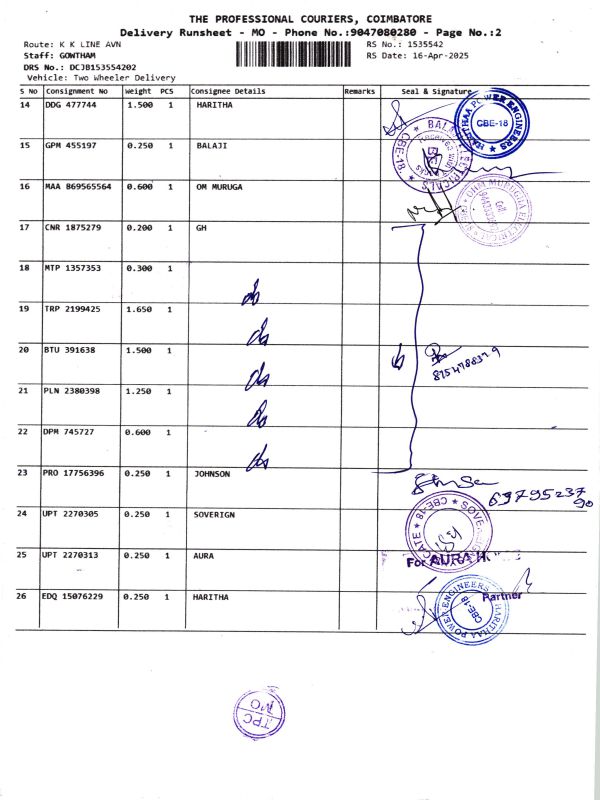 THE PROFESSIONAL COURIERS, COIMBATORE
Delivery Runsheet - MO - Phone No.:9047080280 - Page No.:2
Route: K K LINE AVN RS No.: 1535542
Staff: GOWTHAM RS Date: 16-Apr-2025
DRS No.: DCJB153554202
Vehicle: Two Wheeler Delivery
S No Consignment No Weight PCS Consignee Details Remarks Seal & Signature
14 DDG 477744 1.500 1 HARITHA
HARITHAA POWER ENGINEERS
CBE-18
15 GPM 455197 0.250 1 BALAJI
CBE-18
16 MAA 869565564 0.600 1 OM MURUGA
17 CNR 1875279 0.200 1 GH
18 MTP 1357353 0.300 1
19 TRP 2199425 1.650 1
20 BTU 391638 1.500 1
21 PLN 2380398 1.250 1
22 DPM 745727 0.600 1
23 PRO 17756396 0.250 1 JOHNSON
24 UPT 2270305 0.250 1 SOVERIGN
CBE-18
25 UPT 2270313 0.250 1 AURA
For AURA
26 EDQ 15076229 0.250 1 HARITHA
Partner
HARITHAA POWER ENGINEERS
CBE-18
TPC
MO